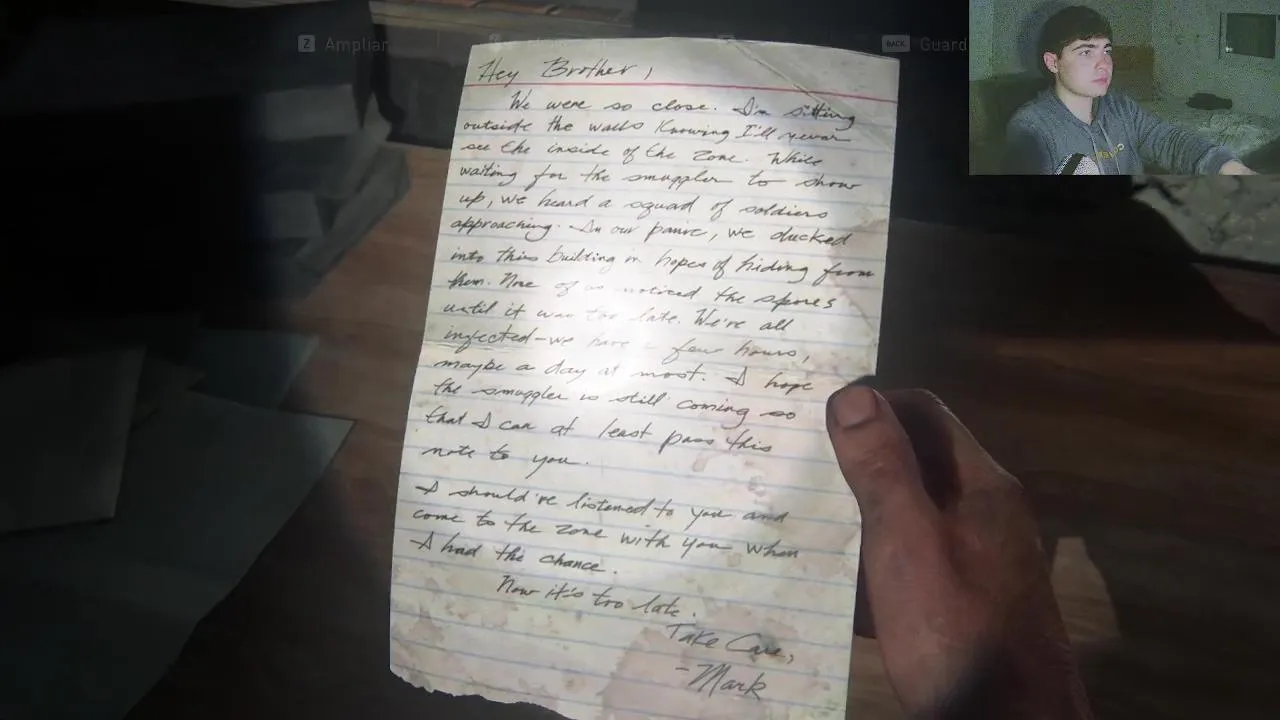 Z Ampliar
BACK Guard
Hey Brother,
We were so close. I'm sitting
outside the walls knowing I'll never
see the inside of the zone. While
waiting for the smuggler to show
up, we heard a squad of soldiers
approaching. In our panic, we ducked
into this building in hopes of hiding from
them. None of us noticed the spores
until it was too late. We're all
infected-we have a few hours,
maybe a day at most. I hope
the smuggler is still coming so
that I can at least pass this
note to you.
I should've listened to you and
come to the zone with you when
I had the chance.
Now it's too late.
Take Care,
-Mark